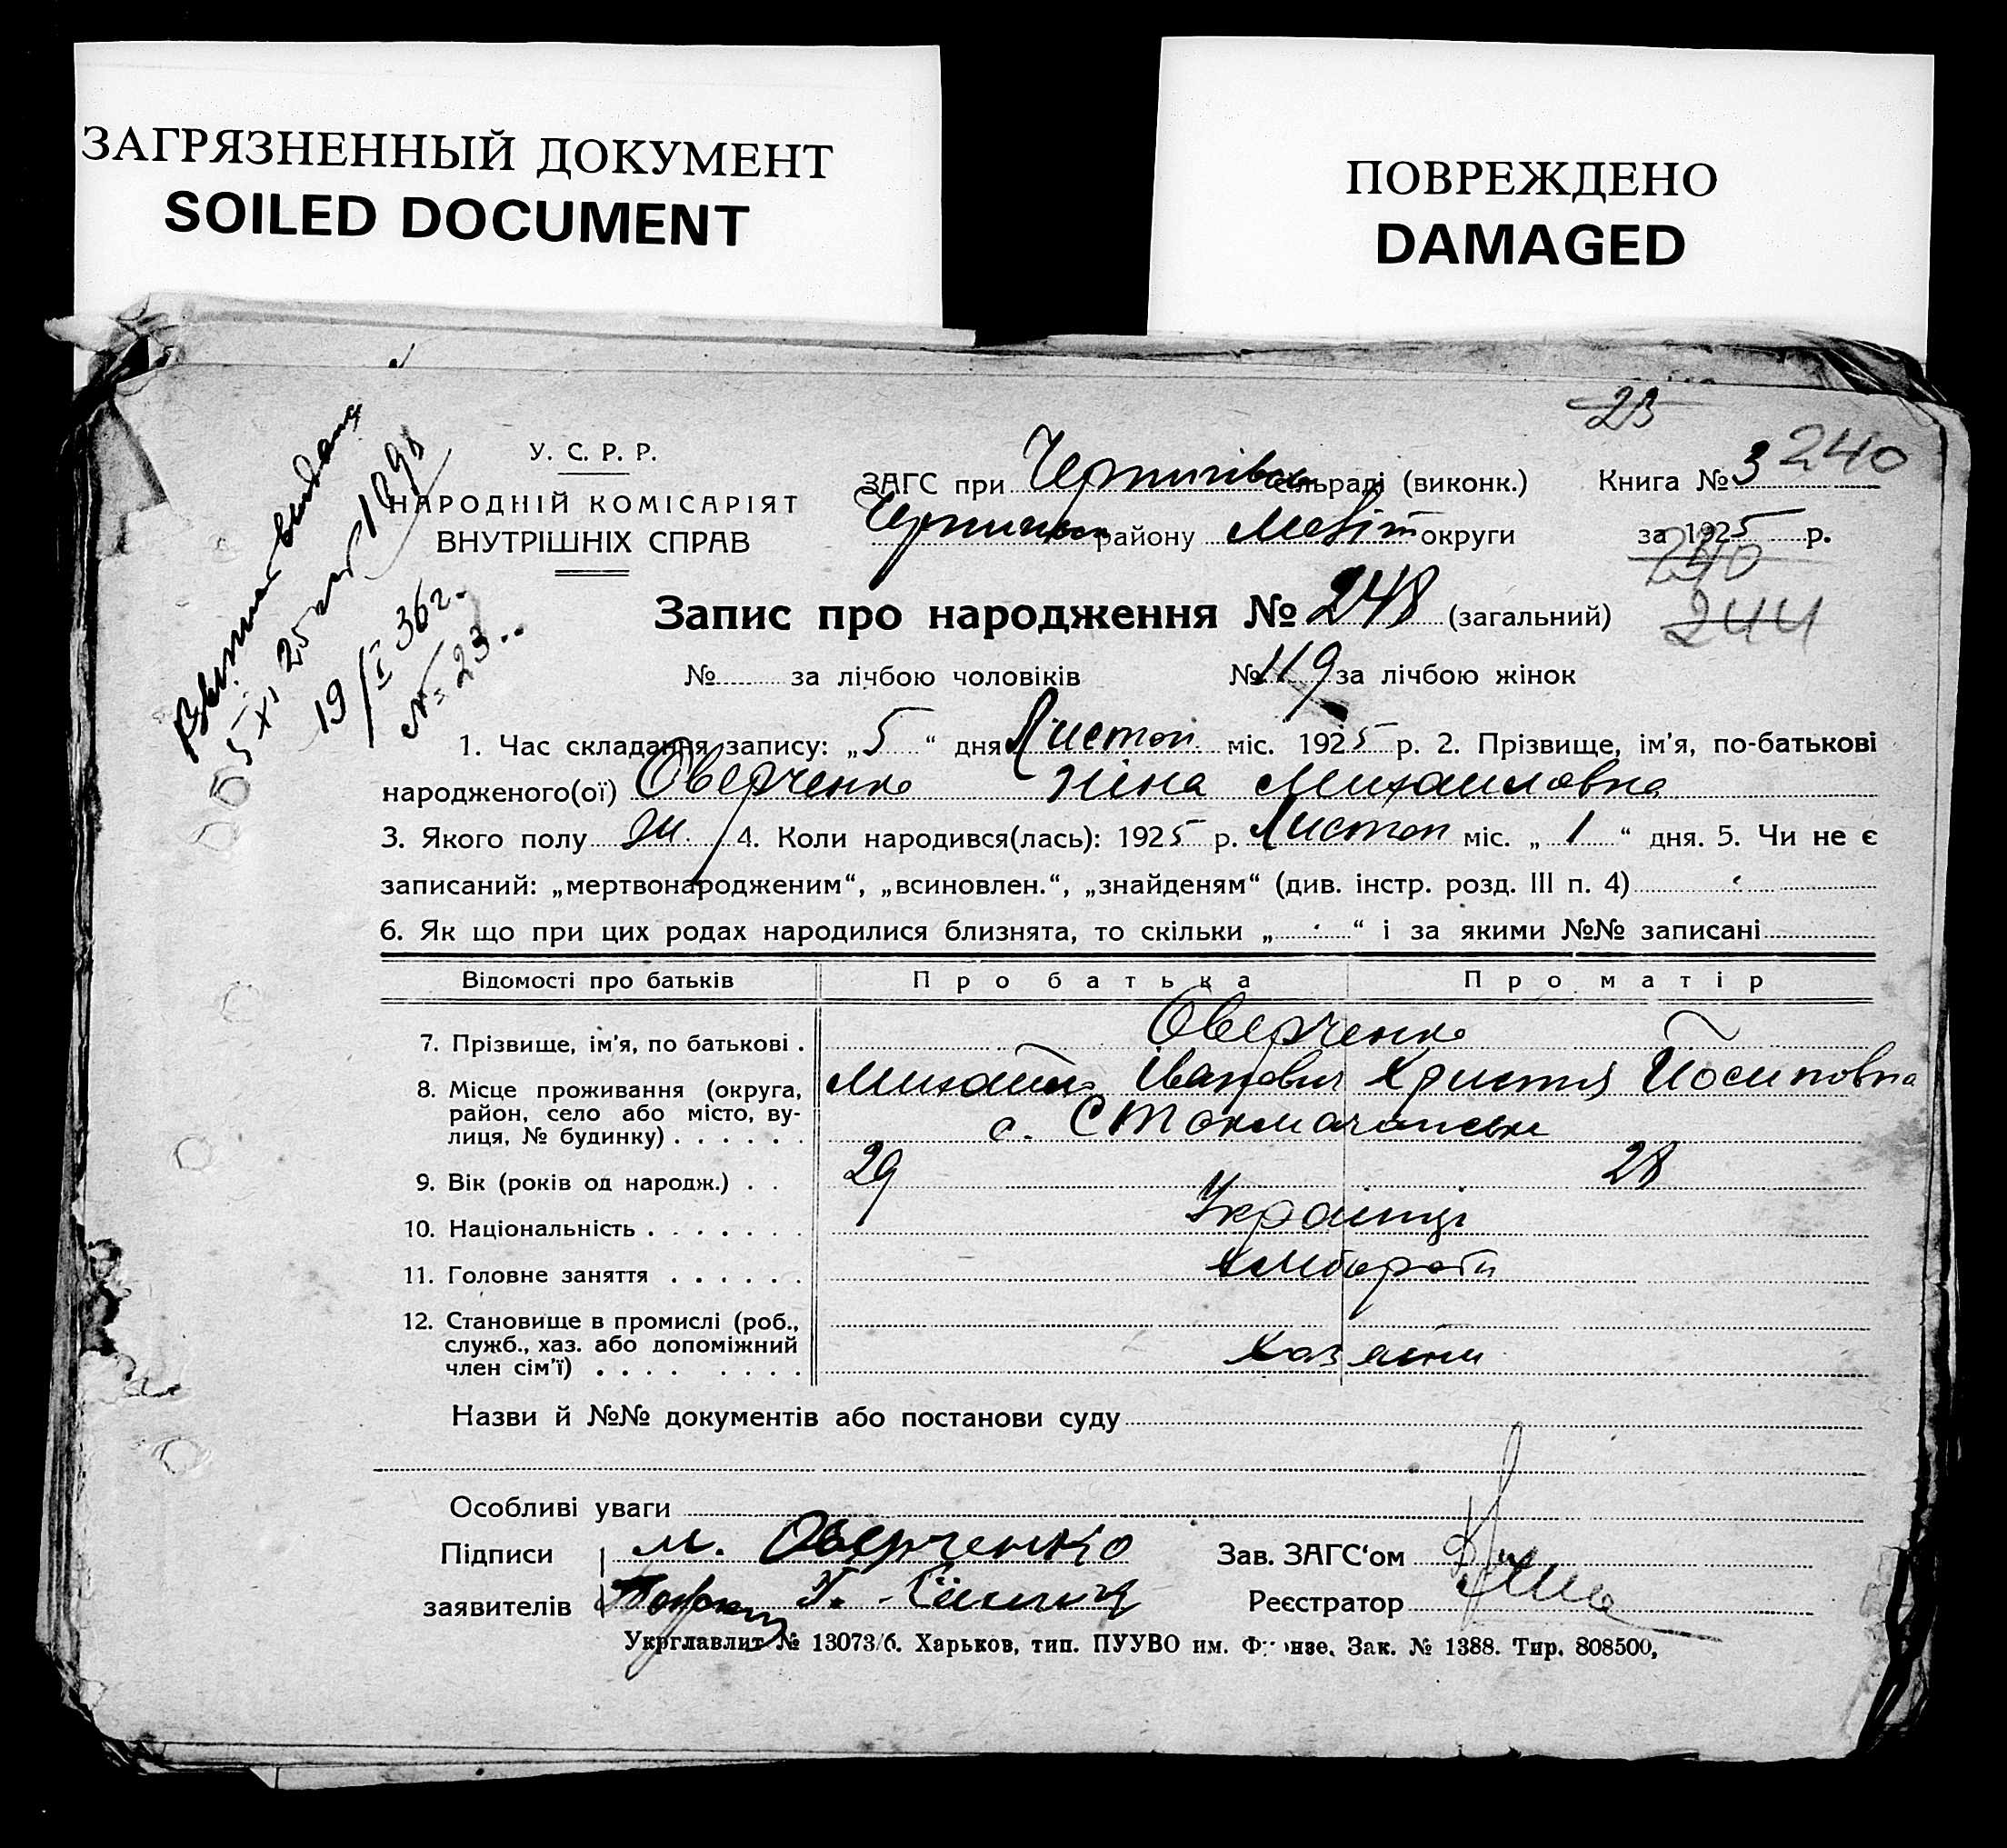 ЗАГРЯЗНЕННЫЙ ДОКУМЕНТ
SOILED DOCUMENT
ПОВРЕЖДЕНО
DAMAGED
23
240
У. С. Р. Р.
НАРОДНІЙ КОМІСАРІЯТ
ВНУТРІШНІХ СПРАВ
ЗАГС при Чернигівск сільраді (виконк.) Книга № 3
району Меліт округи за 1925 р.
240
Запис про народження № 248 (загальний)
244
№ за лічбою чоловіків № 119 за лічбою жінок
5 XI 25
19/I 36 г.
№ 23
1. Час складання запису: „5“ дня Листоп міс. 1925 р. 2. Прізвище, ім’я, по-батькові
народженого(ої) Оверченко Ніна Михаиловна
3. Якого полу ж 4. Коли народився(лась): 1925 р. Листоп міс. „1“ дня. 5. Чи не є
записаний: „мертвонародженим“, „всиновлен.“, „знайденям“ (див. інстр. розд. III п. 4)
6. Як що при цих родах народилися близнята, то скільки „ “ і за якими №№ записані
Відомості про батьків Про батька Про матір
7. Прізвище, ім’я, по батькові . Оверченко
Иванович Христия Йосиповна
8. Місце проживання (округа,
район, село або місто, ву-
лиця, № будинку) . . . . . . с.
9. Вік (років од народж.) . . 29 28
10. Національність . . . . . . . Українці
11. Головне заняття . . . . . . хлібороби
12. Становище в промислі (роб.,
служб., хаз. або допоміжний
член сім’ї) . . . . . . . . хазяїни
Назви й №№ документів або постанови суду
Особливі уваги
Підписи м. Оверченко Зав. ЗАГС‘ом
заявителів Реєстратор
Укрглавлит № 13073/б. Харьков, тип. ПУУВО им. Фрунзе. Зак. № 1388. Тир. 808500,